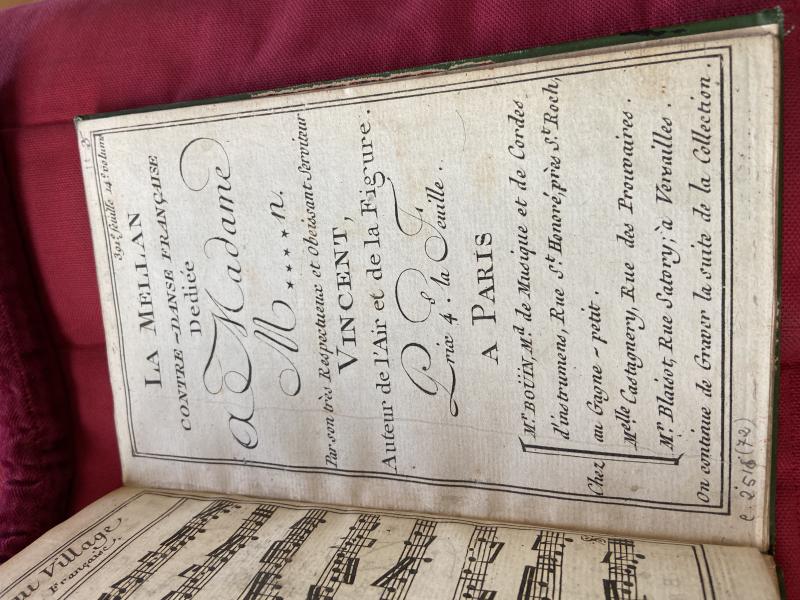 391e. feuille 14e. volume
LA MELLAN
CONTRE-DANSE FRANÇAISE
Dediée
a Madame
M****n.
Par son très Respectueux et Obeissant Serviteur
VINCENT,
Auteur de l'Air et de la Figure.
Prix 4s. la Feuille.
A PARIS
Mr. BOÜIN, Md. de Musique et de Cordes
d'instrumens, Rue St. Honoré, près St. Roch,
Chez au Gagne-petit.
Melle Castagnery, Rue des Prouvaires.
Mr. Blaisot, Rue Satory, à Versailles.
On continue de Graver la suite de la Collection.
au Village
Française.